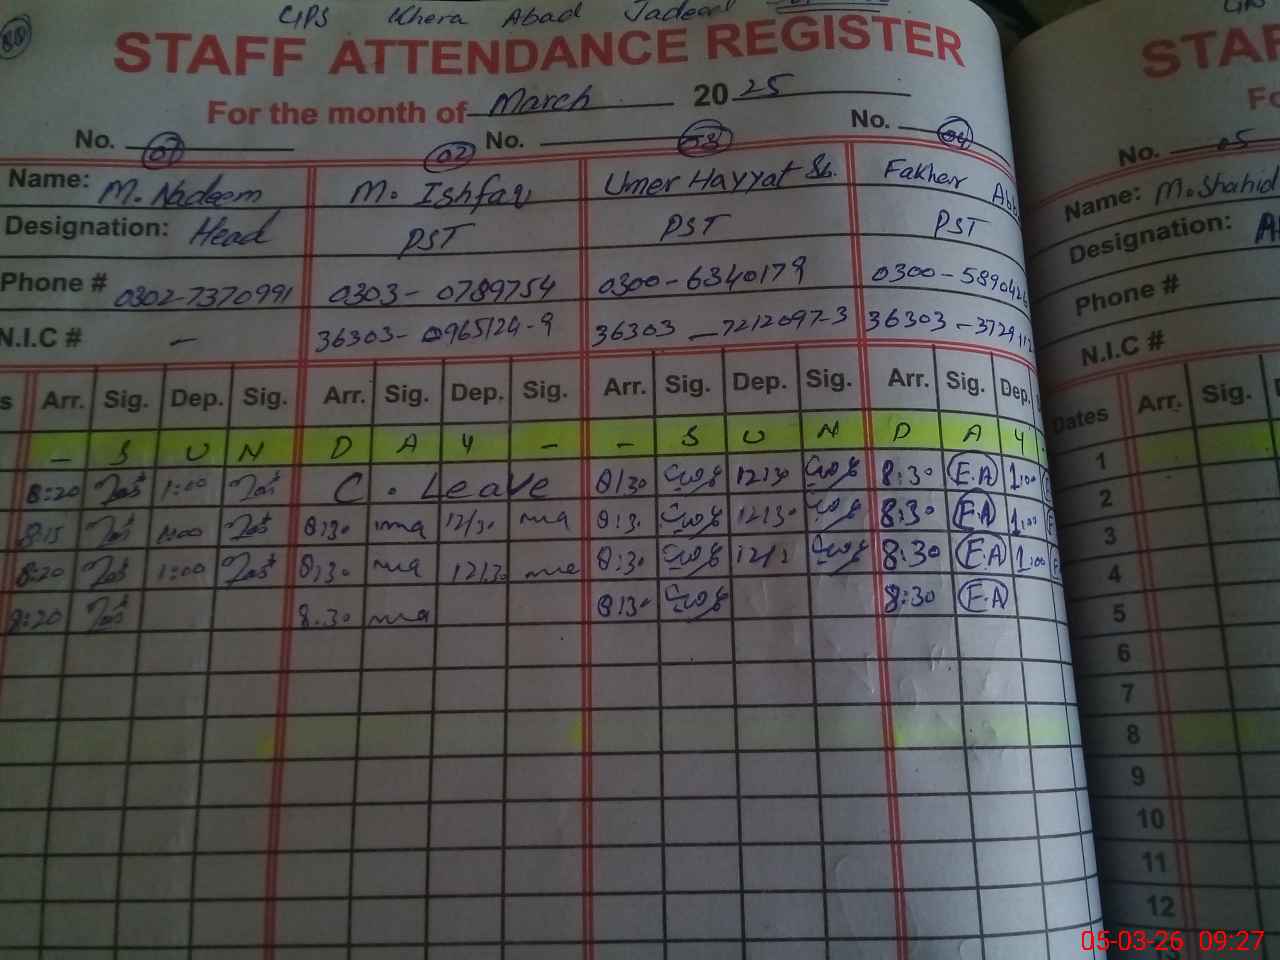 88
GPS Khera Abad Jadeed
STAFF ATTENDANCE REGISTER
For the month of March 2025
No. 01 02 No. 03 No. 04
Name: M. Nadeem M. Ishfaq Umer Hayyat Sb. Fakhar
Designation: Head PST PST PST
Phone # 0302-7370991 0303-0789754 0300-6340179 0300-589042
N.I.C # - 36303-0965124-9 36303-7212097-3 36303-3729112
s Arr. Sig. Dep. Sig. Arr. Sig. Dep. Sig. Arr. Sig. Dep. Sig. Arr. Sig. Dep.
- S U N D A Y - - S U N D A Y
8:20 1:00 C. Leave 8:30 12:30 8:30 F.A 1:00
8:15 1:00 8:30 ma 12/30 ma 8:3. 12:30 8:30 F.A 1:00
8:20 1:00 8:30 ma 12:30 ma 8:30 8:30 F.A 1:00
8:20 8:30 ma 8:30 8:30 F.A
STAF
No. 05
Name: M. Shahid
Designation:
Phone #
N.I.C #
Dates Arr. Sig.
1
2
3
4
5
6
7
8
9
10
11
12
05-03-26 09:27